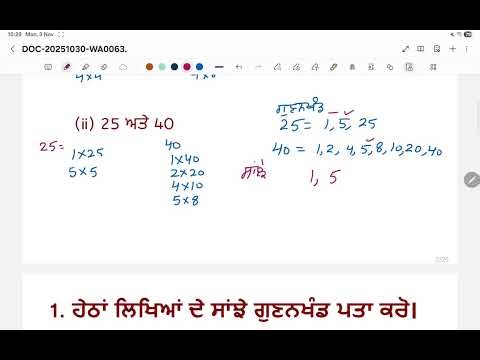 10:28 Mon, 3 Nov
DOC-20251030-WA0063.
4x4
(ii) 25 ਅਤੇ 40
25=
1x25
5x5
40
1x40
2x20
4x10
5x8
ਗੁਣਨਖੰਡ
25 = 1, 5, 25
40 = 1, 2, 4, 5, 8, 10, 20, 40
ਸਾਂਝੇ 1, 5
2/25
1. ਹੇਠਾਂ ਲਿਖਿਆਂ ਦੇ ਸਾਂਝੇ ਗੁਣਨਖੰਡ ਪਤਾ ਕਰੋ।